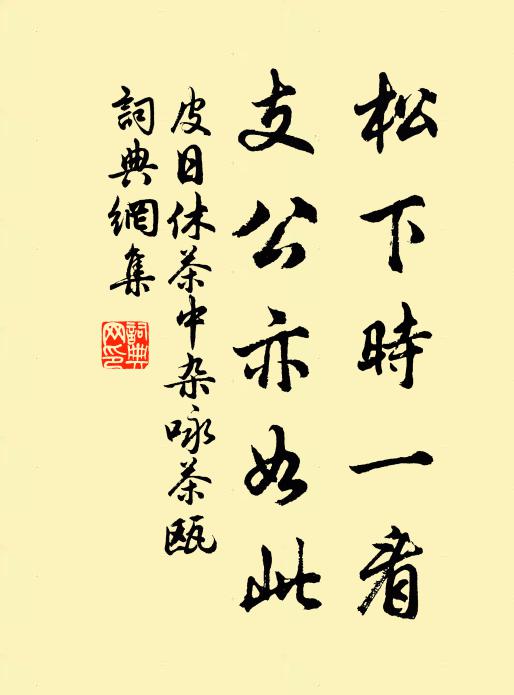 松下時一看
支公亦如此
皮日休茶中杂咏茶瓯
詞典網集
詞典网印